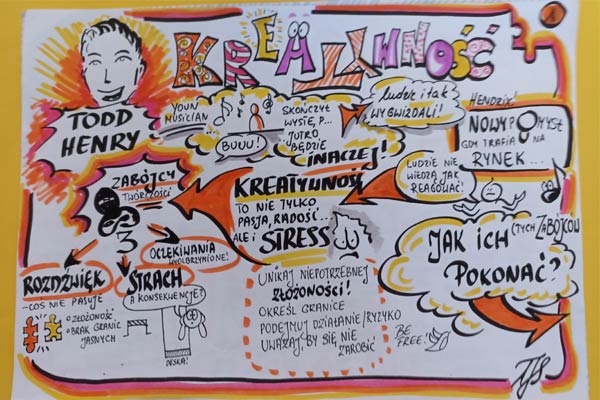 KREATYWNOŚĆ
1
TODD
HENRY
YOUNG
MUSICIAN
BUUU!
SKOŃCZYŁ
WYSTĘP...
JUTRO
BĘDZIE
INACZEJ!
ludzie i tak
WYGWIZDALI!
HENDRIX
NOWY POMYSŁ
GDY TRAFIA NA
RYNEK...
LUDZIE NIE
WIEDZĄ JAK
REAGOWAĆ!
KREATYWNOŚĆ
TO NIE TYLKO
PASJA, RADOŚĆ...
ALE i STRESS
ZABÓJCY
TWÓRCZOŚCI
3
ROZDŹWIĘK
-COŚ NIE PASUJE
ZŁOŻONOŚĆ
BRAK GRANIC
JASNYCH
STRACH
A KONSEKWENCJE?
DESKA!
OCZEKIWANIA
WYOLBRZYMIONE!
JAK ICH (TYCH ZABÓJCÓW)
POKONAĆ?
UNIKAJ NIEPOTRZEBNEJ
ZŁOŻONOŚCI!
OKREŚL GRANICE
PODEJMUJ DZIAŁANIE/RYZYKO
UWAŻAJ BY SIĘ NIE
ZAROBIĆ
BE
FREE!